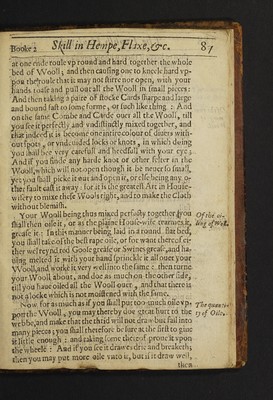 Booke 2 Skill in Hempe, Flaxe, &c. 87
at one ende roule vp round and hard together the whole
bed of Wooll; and then causing one to kneele hard vp-
pon the roule that it may not stirre nor open, with your
hands toase and pull out all the Wooll in small pieces:
And then taking a paire of Stocke Cards sharpe and large
and bound fast to some forme, or such like thing: And
on the same Combe and Carde ouer all the Wooll, till
you see it perfectly and vndistinctly mixed together, and
that indeed it is become one intire colour of diuers with-
out spots, or vndeuided lockes or knots, in which doing
you shall bee very carefull and heedfull with your eye;
And if you finde any harde knot or other felter in the
Wooll, which will not open though it be neuer so small,
yet you shall picke it out and open it, or else being any o-
ther fault cast it away: for it is the greatest Art in House-
wifery to mixe these Wools right, and to make the Cloth
without blemish.
Your Wooll being thus mixed perfectly together you
shall then oile it, or as the plaine House-wife tearmes it,
grease it: In this manner being laid in a round flat bed,
you shall take of the best rape oile, or for want thereof ei-
ther wel reynd red Goose grease or Swines grease, and ha-
uing melted it with your hand sprinckle it all ouer your
Wooll, and worke it very well into the same: then turne
your Wooll about, and doe as much on the other side,
till you haue oiled all the Wooll ouer, and that there is
not a locke which is not moistned with the same.
Now for as much as if you shall put too much oile vp-
pon the Wooll, you may thereby doe great hurt to the
webbe, and make that the thrid will not draw but fall into
many pieces; you shall therefore be sure at the first to giue
it little enough: and taking some thereof proue it vpon
the wheele: And if you see it drawes drie and breaketh,
then you may put more oile vnto it, but if it draw well,
then
Of the oy-
ling of Wol.
The quanti-
ty of Oile.